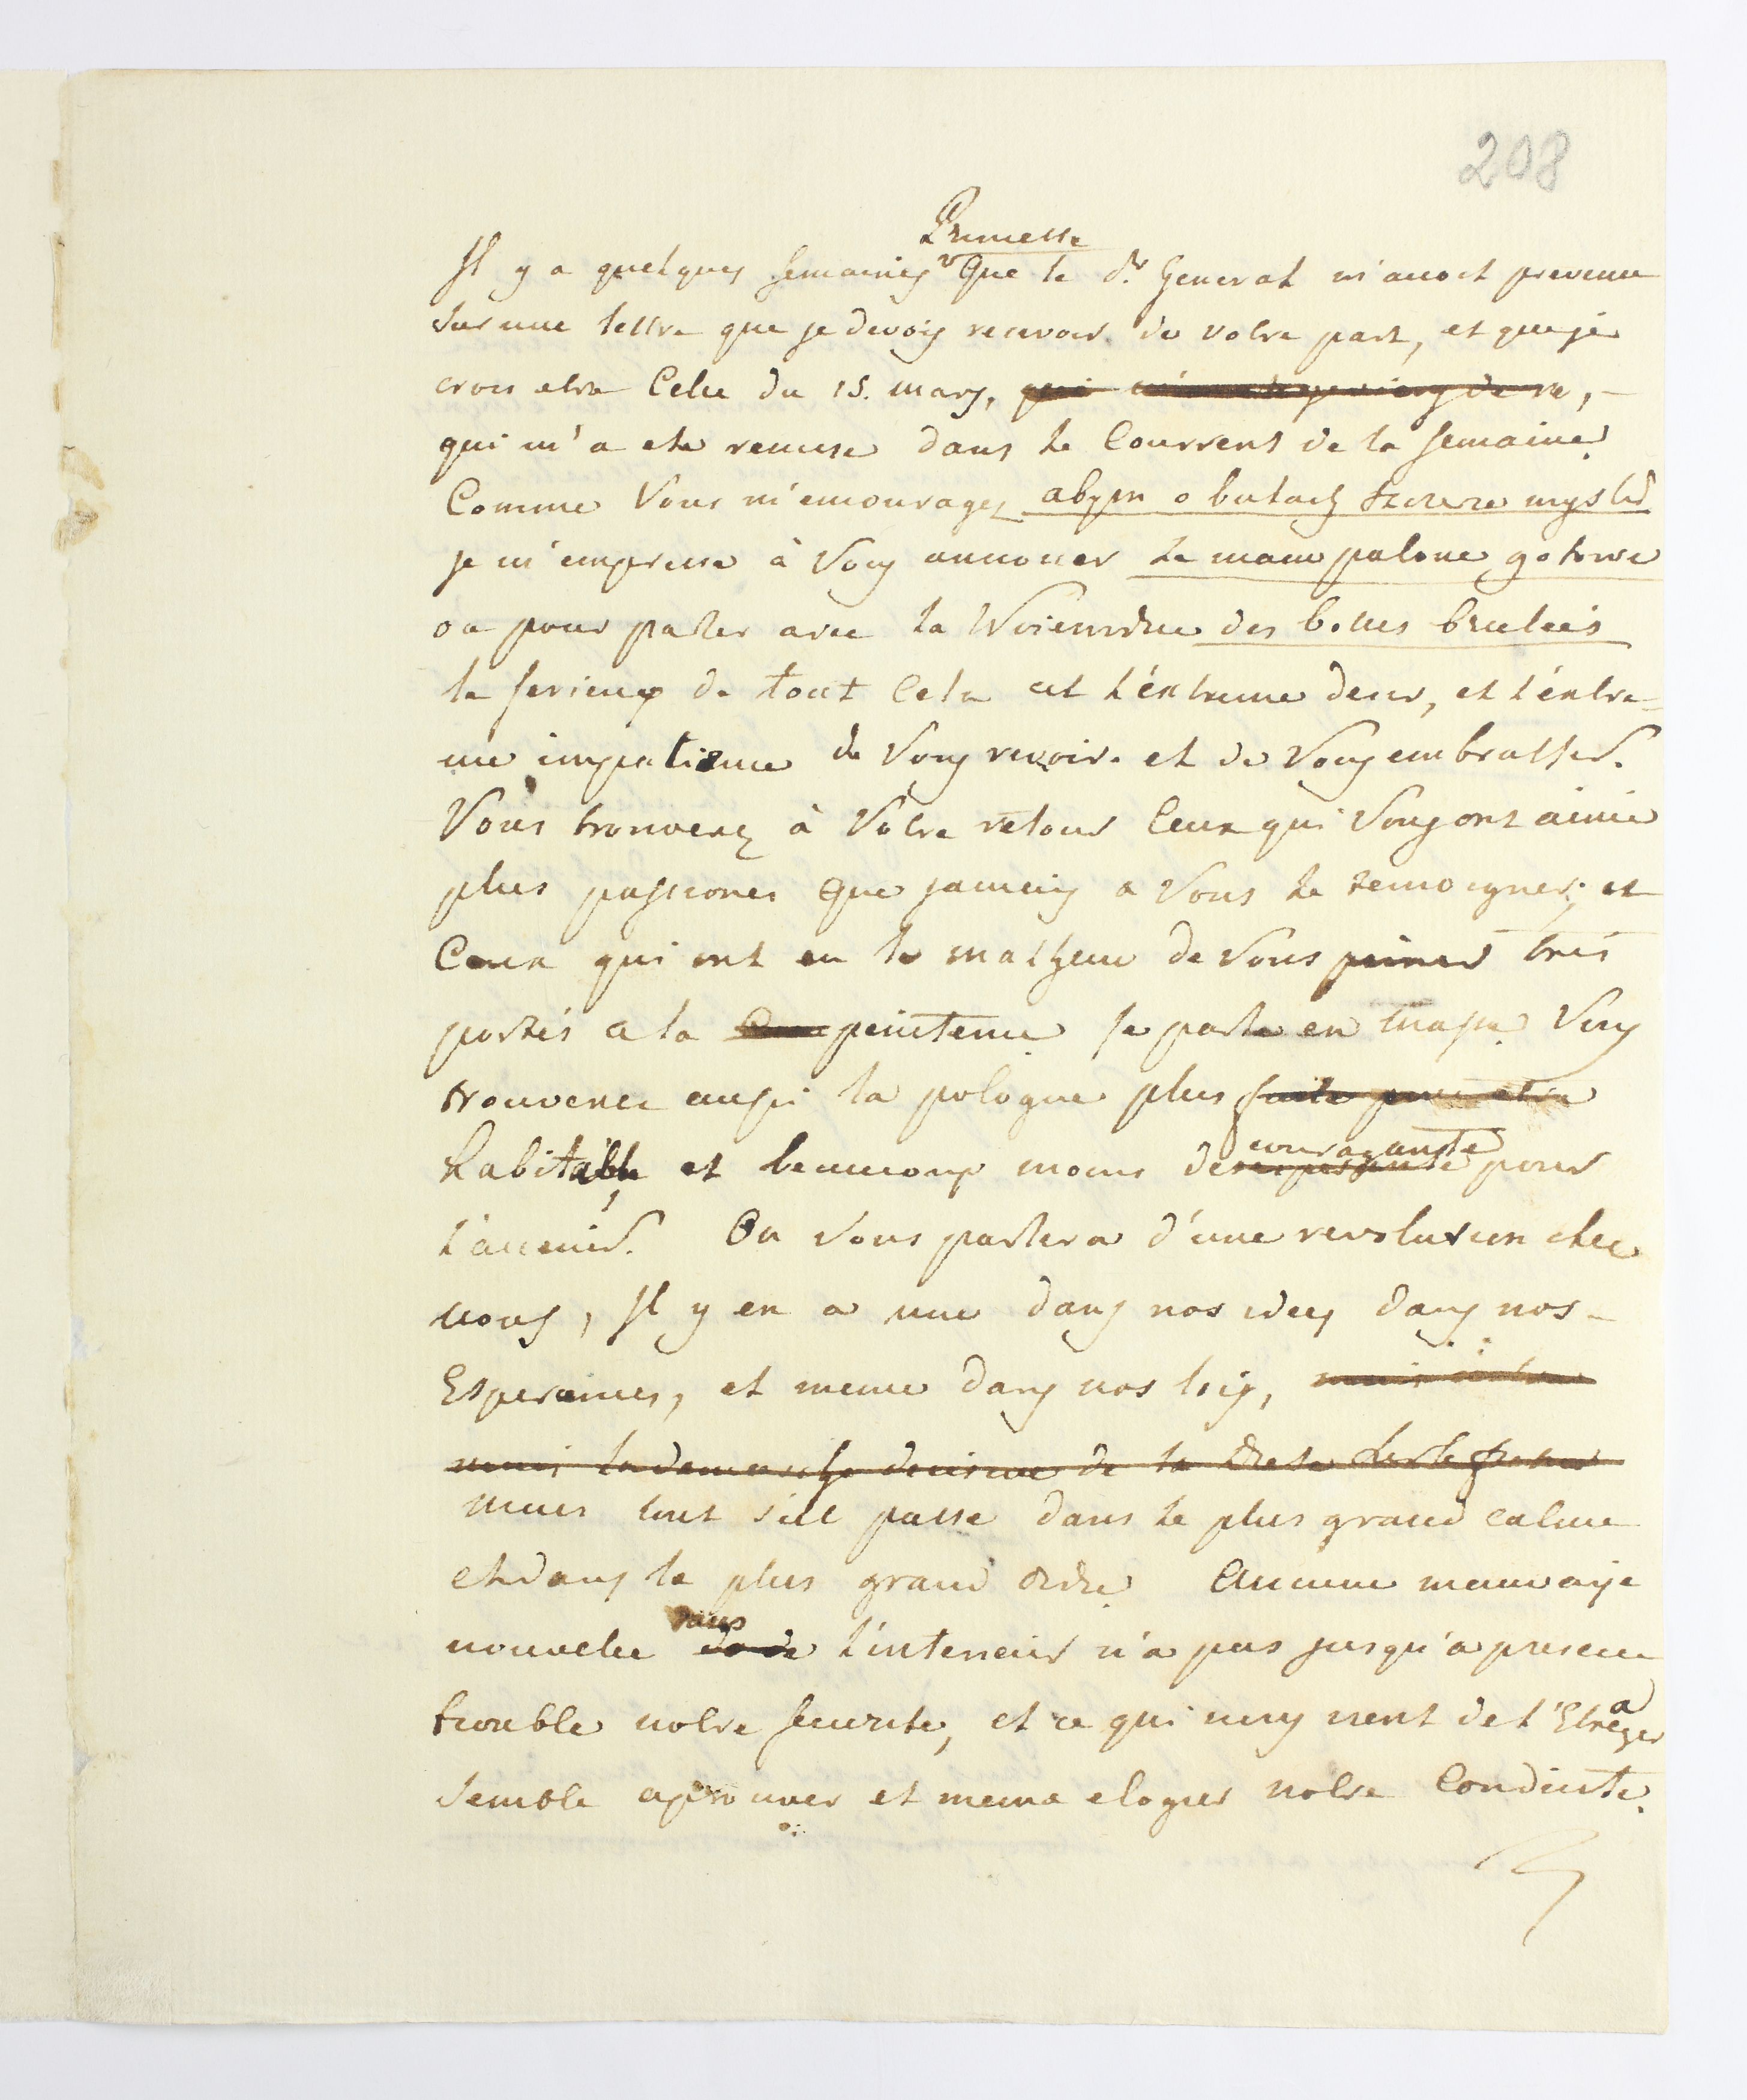 208
Princesse
Il y a quelques semaines que le Dr General m'avoit prevenu
sur une lettre que je devois recevoir de votre part, et que je
crois etre Celle du 15. mars, qui
qui m'a ete remise dans le Courrent de la semaine.
Comme Vous m'encouragez abym o butach szczeze myslić
je m'empresse à Vous annoncer ze mam palone gotowe
ou pour parler avec la des bottes brulées
le serieux de tout Cela est l'éxtreme desir, et l'éxtre-
me impatience de Vous revoir. et de Vous embrasser.
Vous trouverez à Votre retour Ceux qui Vous ont aimé
plus passionés que jamais a Vous le temoigner; et
Ceux qui ont eu le malheur de Vous peiner très
portés a la penitence. je parle en masse. Vous
trouverez aussi la pologne plus faite pour etre
habitable, et beaucoup moins decourageante pour
l'avenir. On Vous parlera d'une revolution chez
nous, Il y en a une dans nos idees dans nos-
Esperances, et meme dans nos loix, mais
mais la demarche decisive de la Diete
mais tout s'est passé dans le plus grand calme
et dans le plus grand ordre. Aucune mauvaise
nouvelle dans l'interieur n'a pas jusqu'a present
trouble notre securite, et ce qui nous vient de l'Etrager
a
semble aprouver et meme eloger notre Conduite.